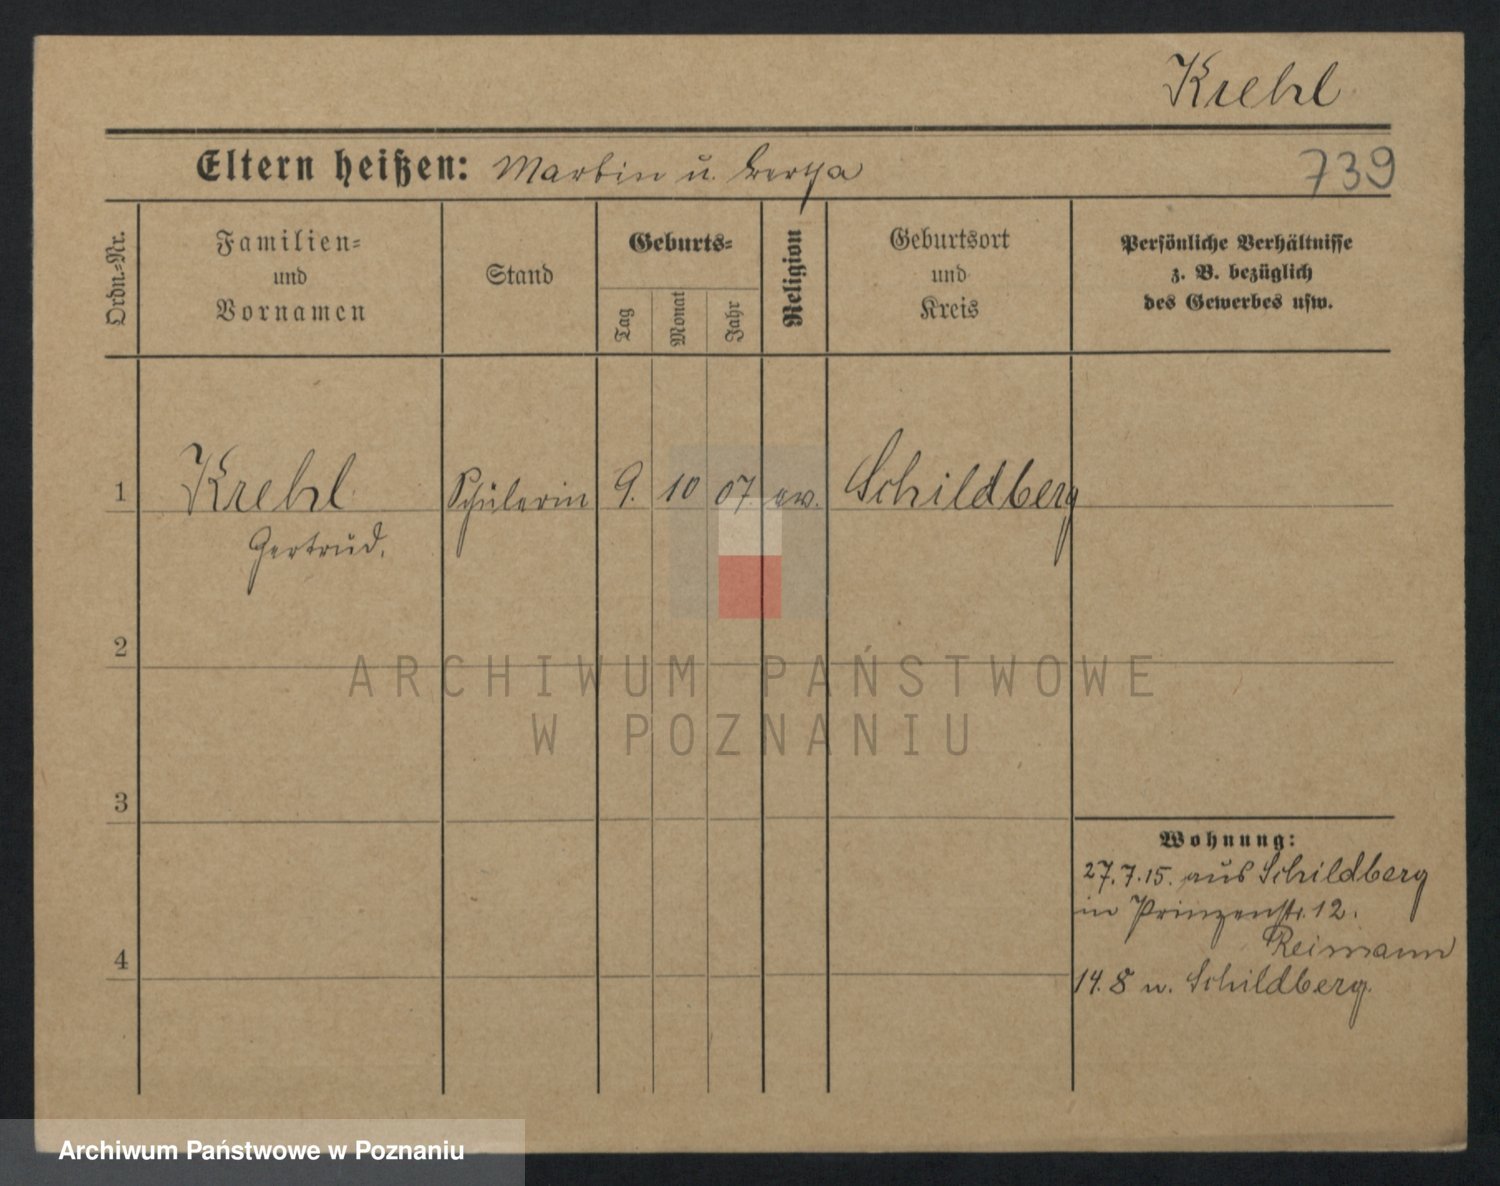 Krehl
Eltern heißen: Martin u. Bertha
739
Ordn.=Nr.
Familien=
und
Vornamen
Stand
Geburts=
Tag
Monat
Jahr
Religion
Geburtsort
und
Kreis
Persönliche Verhältnisse
z. B. bezüglich
des Gewerbes usw.
1 Krehl Schülerin 9. 10 07. ev. Schildberg
Gertrud.
2
3
4
Wohnung:
27.7.15. aus Schildberg
in Prinzenstr. 12.
Reimann
14.8 n. Schildberg.
ARCHIWUM PAŃSTWOWE
W POZNANIU
Archiwum Państwowe w Poznaniu